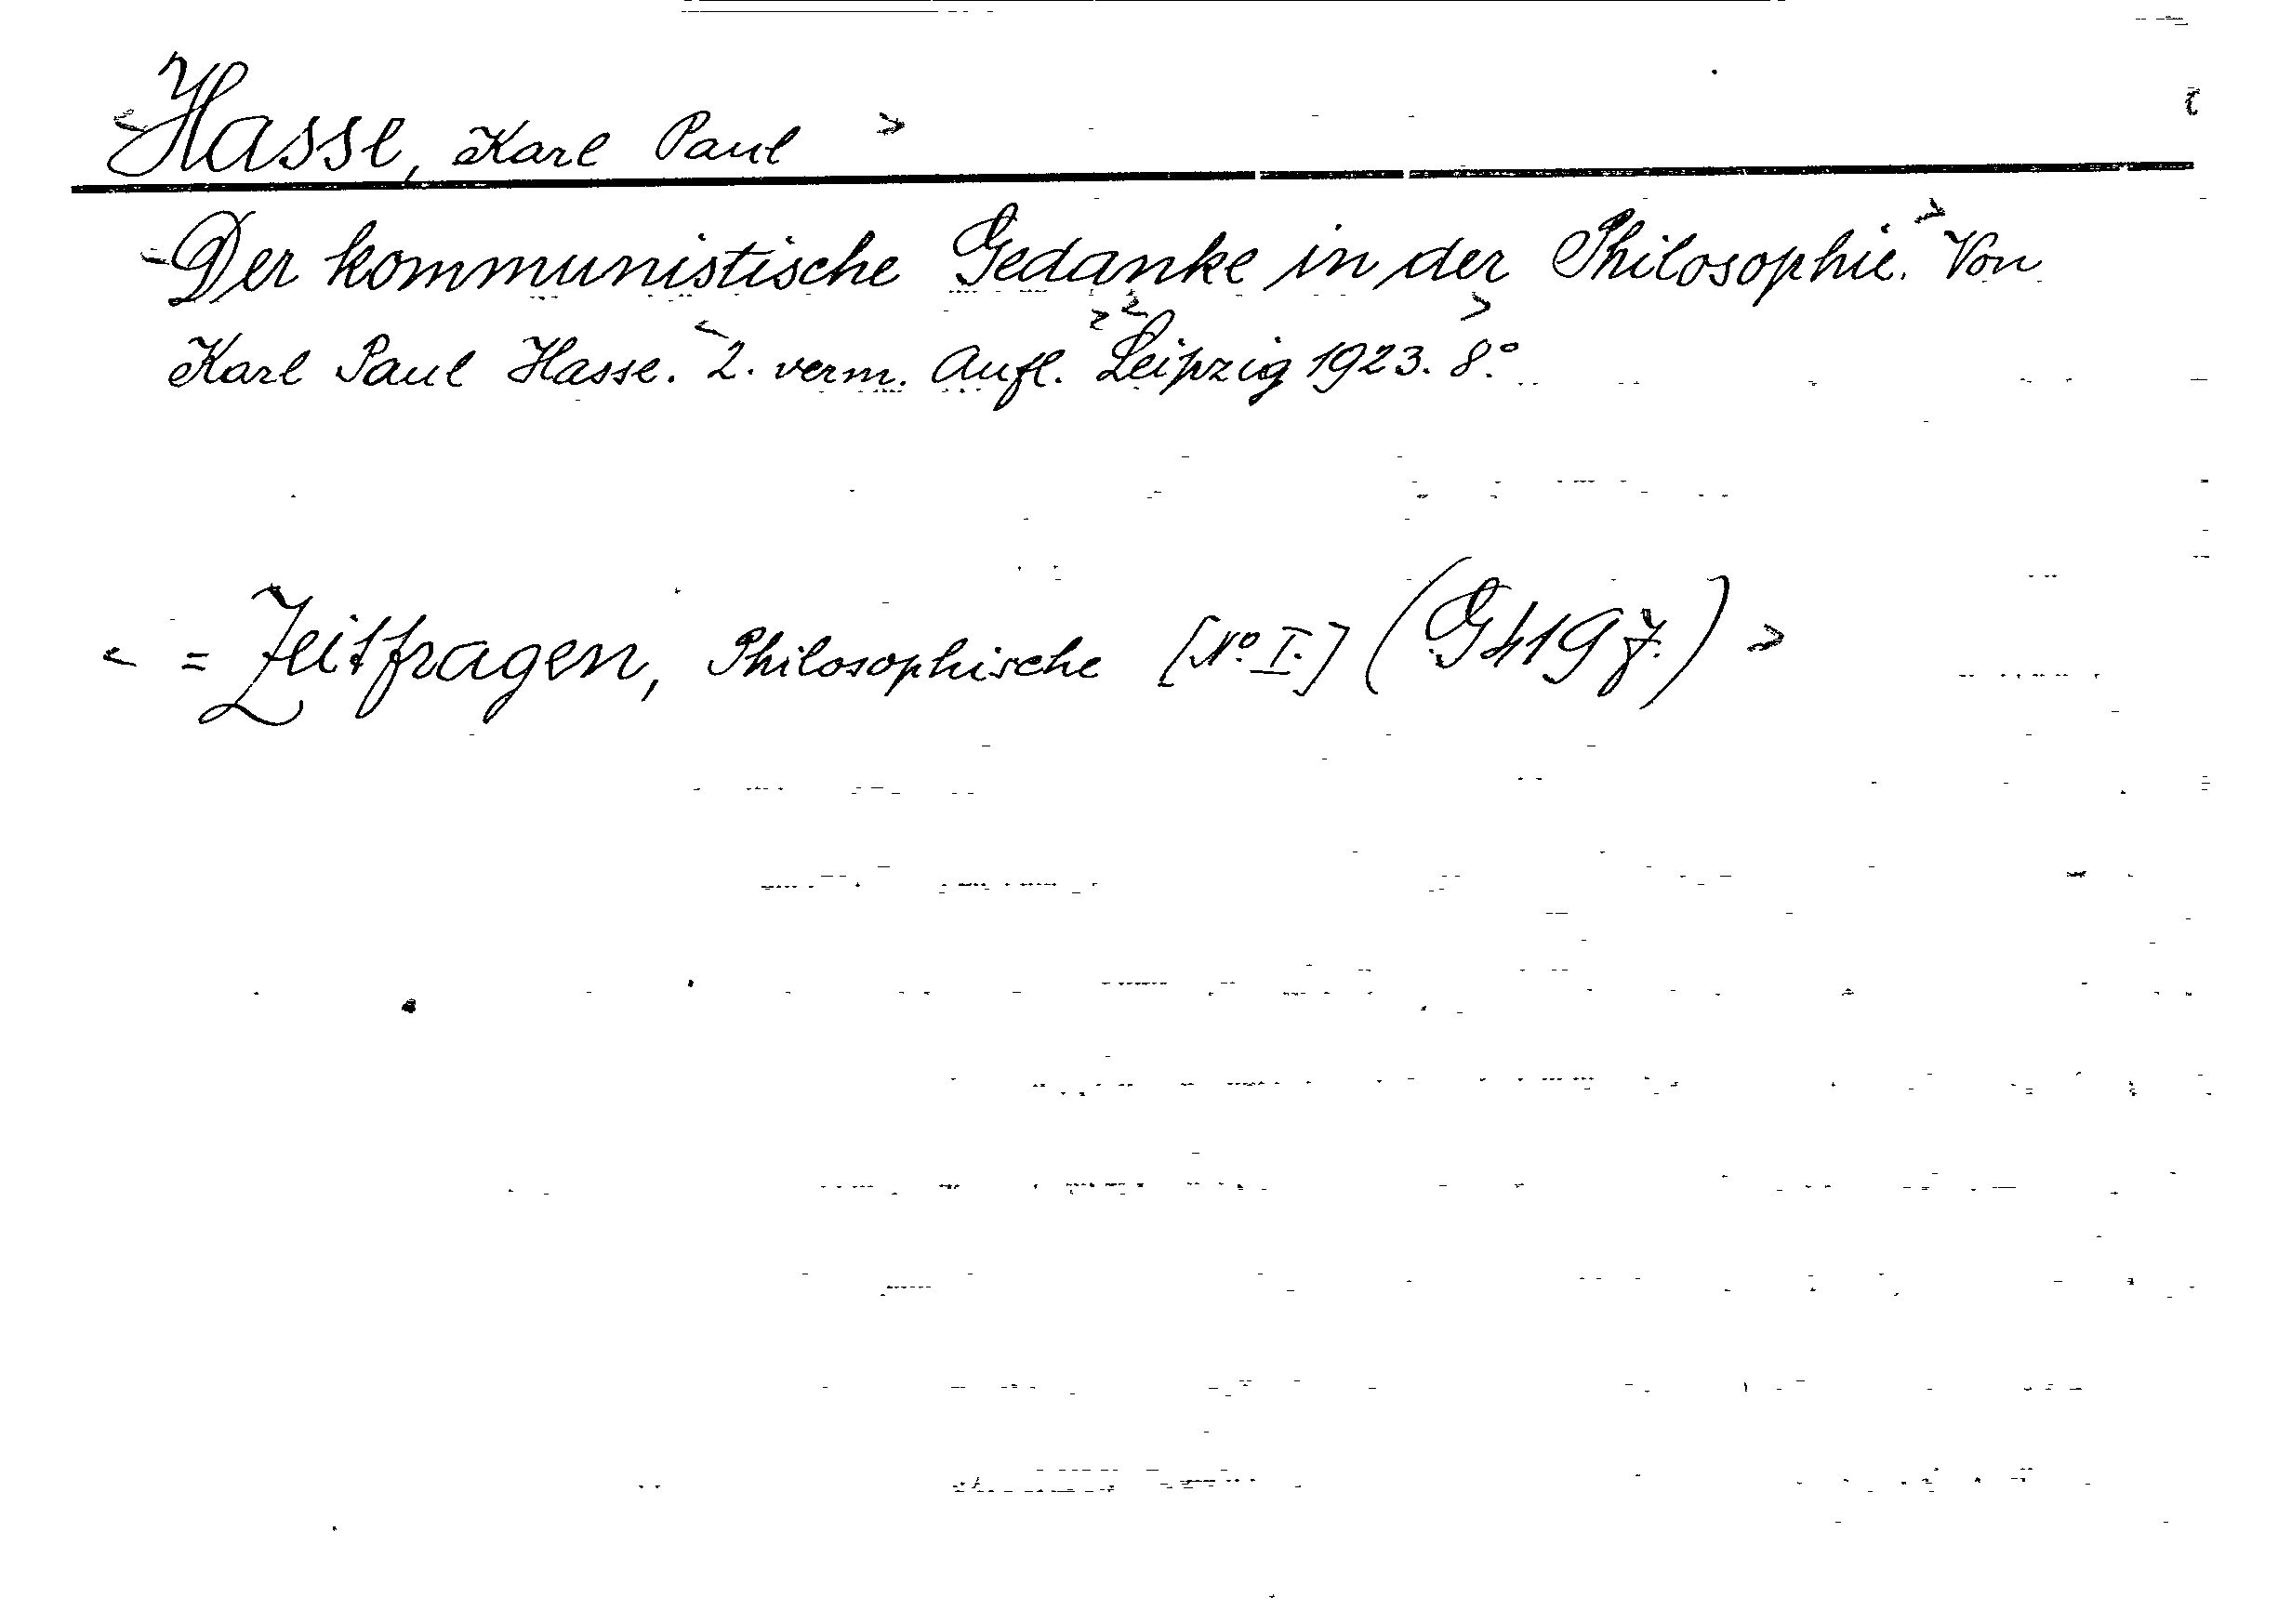 <Hasse, Karl Paul >
<Der kommunistische Gedanke in der Philosophie.> Von
Karl Paul Hasse. <2. verm. Aufl. Leipzig 1923.> 8.°
< = Zeitfragen, Philosophische [No. I.] (G 4197.) >